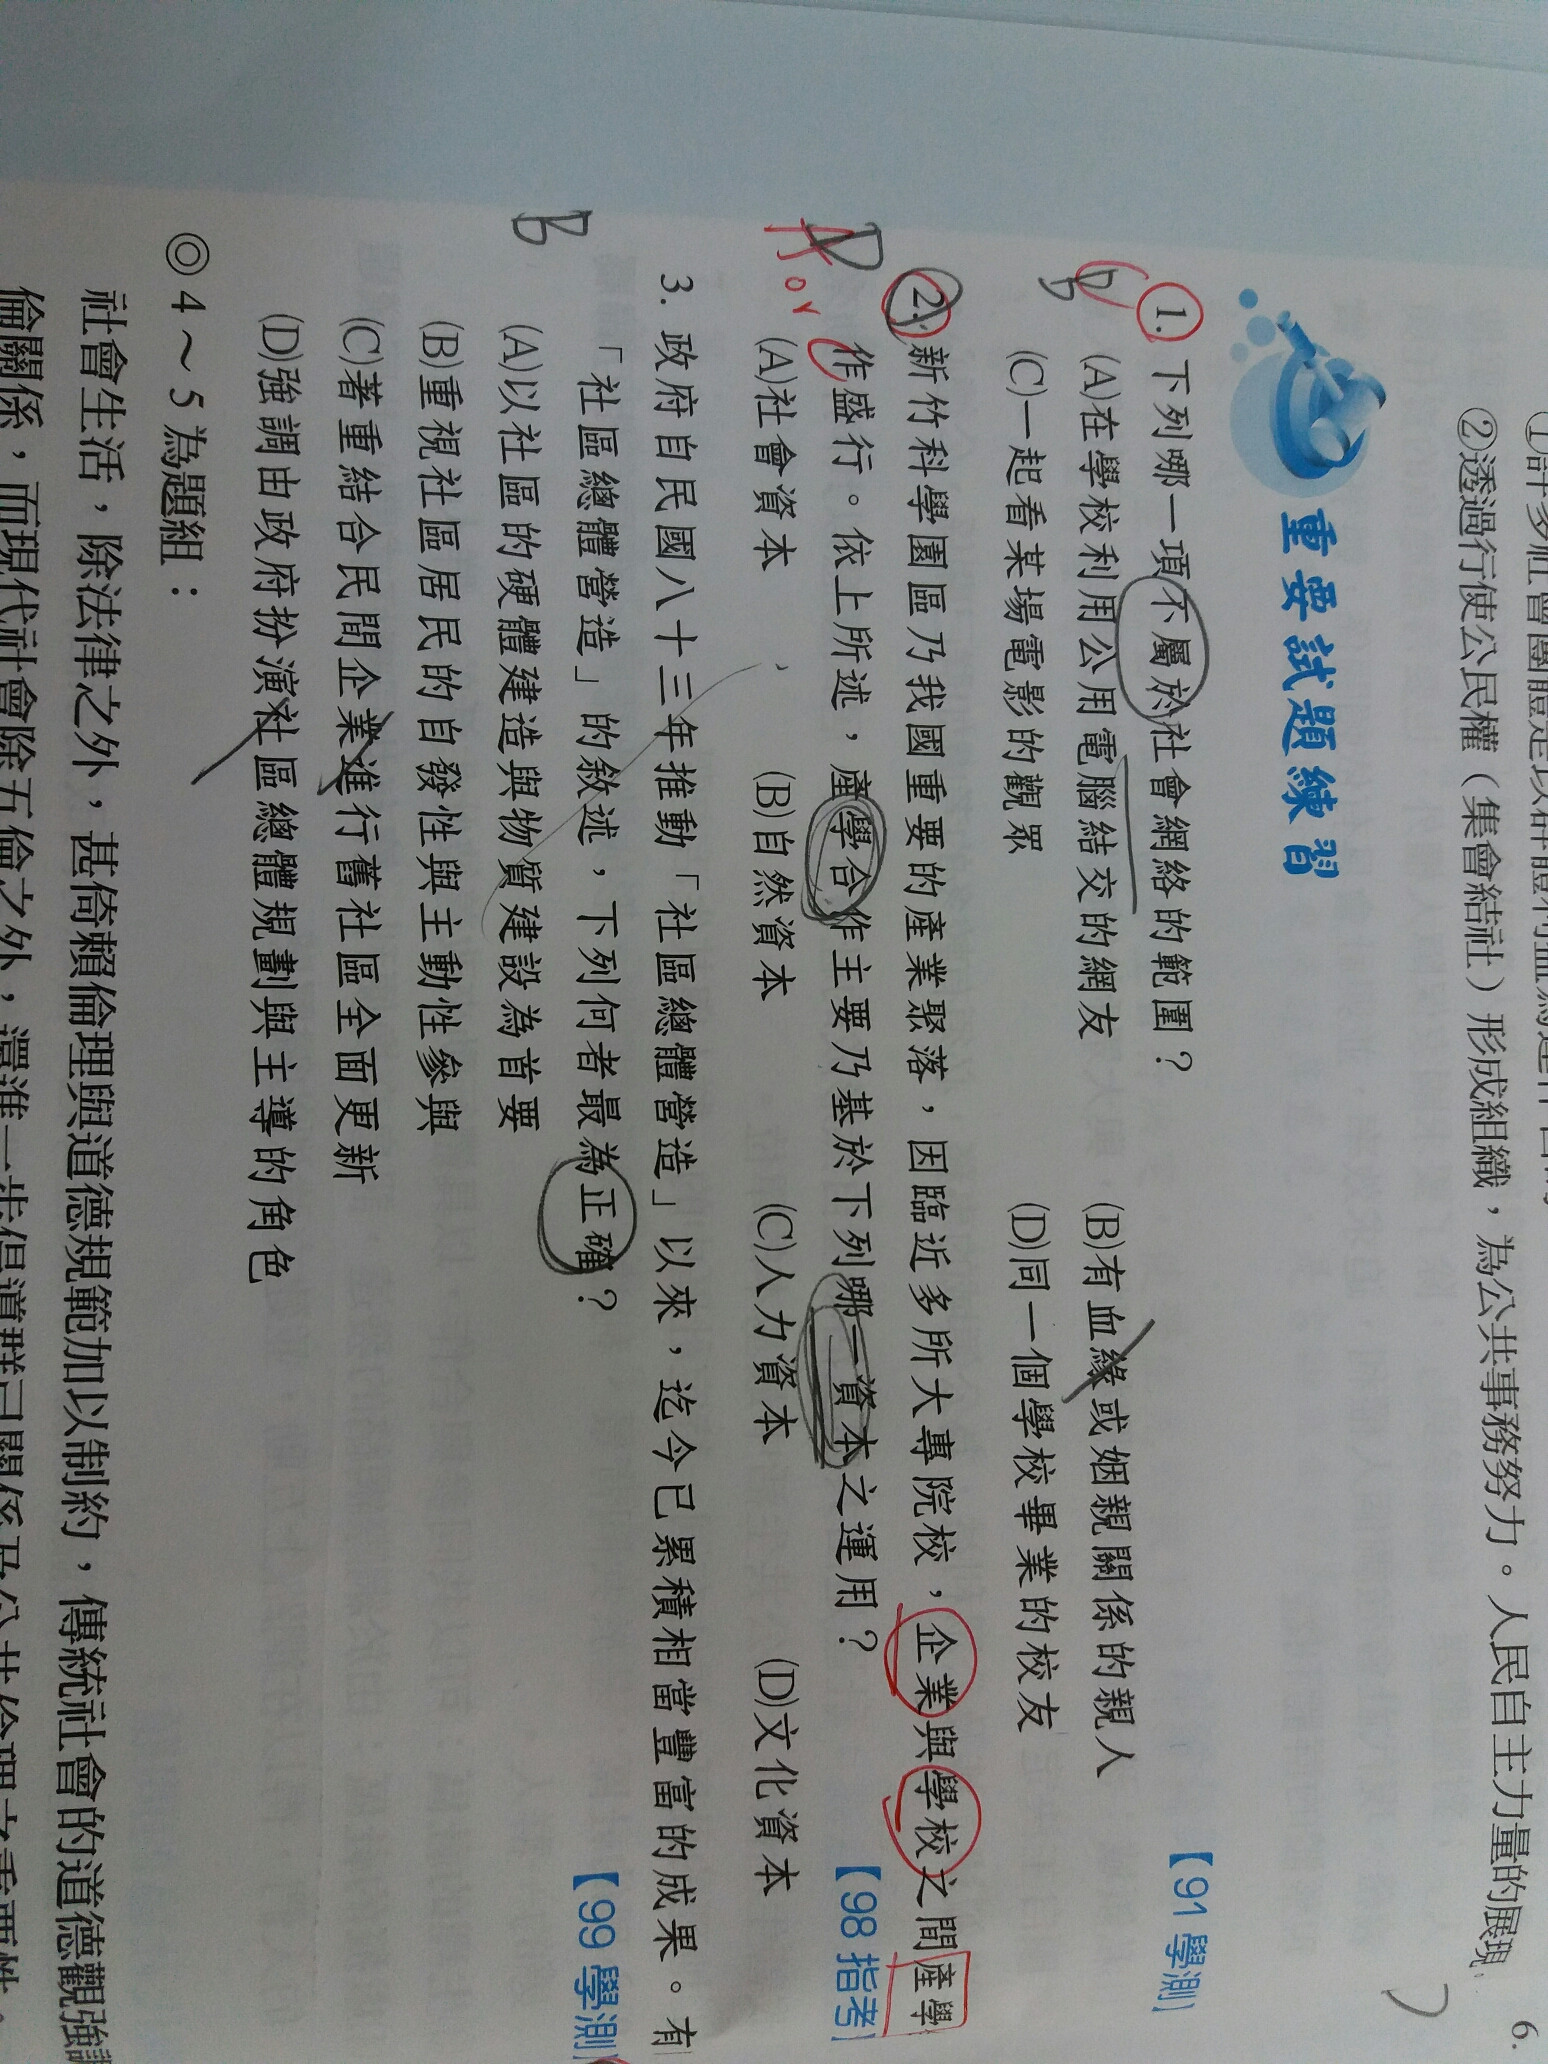 ②透過行使公民權（集會結社）形成組織，為公共事務努力。人民自主力量的展現。
6.
重要試題練習
1. 下列哪一項不屬於社會網絡的範圍？【91 學測】
(A)在學校利用公用電腦結交的網友 (B)有血緣或姻親關係的親人
(C)一起看某場電影的觀眾 (D)同一個學校畢業的校友
C
2. 新竹科學園區乃我國重要的產業聚落，因臨近多所大專院校，企業與學校之間產學
作盛行。依上所述，產學合作主要乃基於下列哪一資本之運用？【98 指考】
(A)社會資本 (B)自然資本 (C)人力資本 (D)文化資本
D
A or C
3. 政府自民國八十三年推動「社區總體營造」以來，迄今已累積相當豐富的成果。有
「社區總體營造」的敘述，下列何者最為正確？【99 學測】
(A)以社區的硬體建造與物質建設為首要
(B)重視社區居民的自發性與主動性參與
(C)著重結合民間企業進行舊社區全面更新
(D)強調由政府扮演社區總體規劃與主導的角色
B
◎4～5 為題組：
社會生活，除法律之外，甚倚賴倫理與道德規範加以制約，傳統社會的道德觀強調
倫關係，而現代社會除五倫之外，還進一步倡導群己關係及公共倫理之重要性。